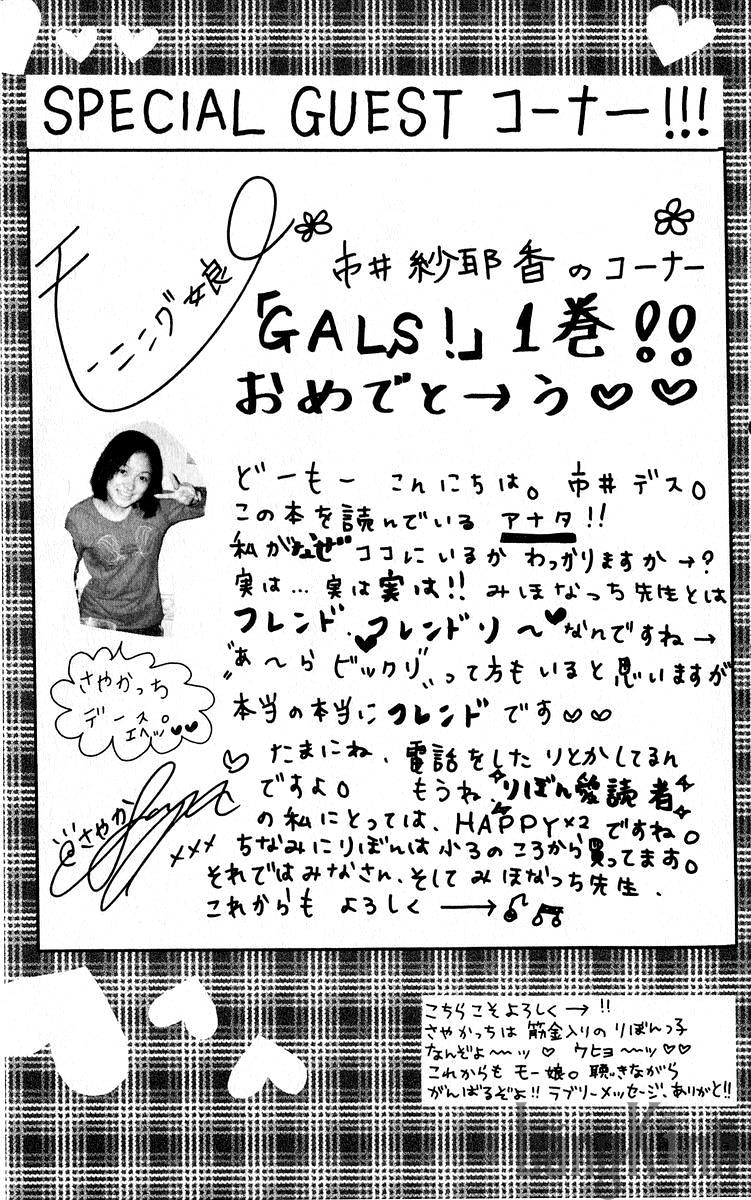 SPECIAL GUEST コーナー!!!
モーニング娘
市井紗耶香のコーナー
「GALS!」1巻!!
おめでと→う♡♡
どーもー こんにちは。市井デス。
この本を読んでいる アナタ!!
私がなぜ ココにいるか わっかりますか→?
実は…実は実は!! みほなっち先生とは
フレンド、フレンドリ〜♥なんですね→
"あ〜らビックリ"って方もいると思いますが
本当の本当にフレンドです♡♡
たまにね、電話をしたりとかしてるん
ですよ。 もうね、りぼん愛読者
の私にとっては、HAPPY×2ですね。
ちなみにりぼんは小るのころから買ってます。
それではみなさん、そしてみほなっち先生、
これからも よろしく→♪♫
さやかっち
デース。
エヘッ♡♡
@さやか
×××
こちらこそよろしく→!!
さやかっちは 筋金入りの りぼんっ子
なんぞよ〜ッ♡ ウヒョ〜ッ♡♡
これからも モー娘。聴きながら
がんばるぞよ!! ラブリーメッセージ、ありがと!!